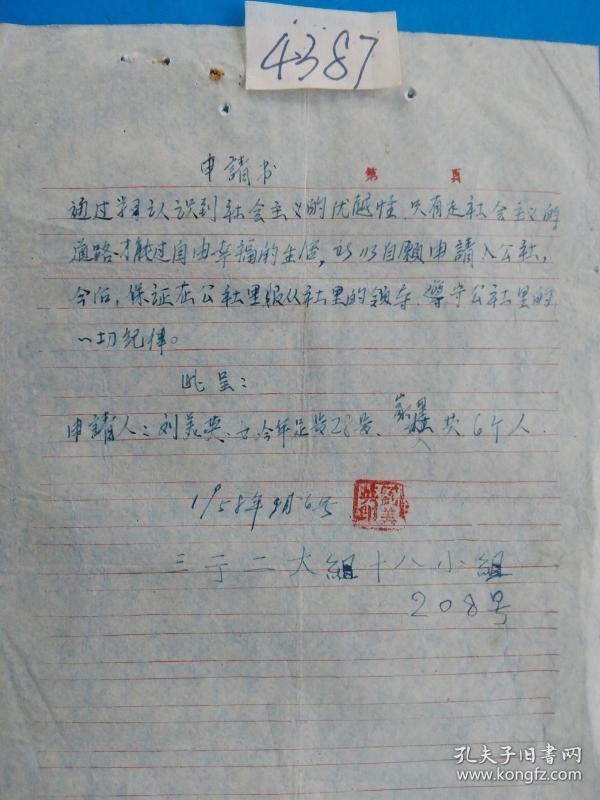 4387
申請书
第 頁
通过学习认识到社会主义的优越性,只有走社会主义的
道路才能过自由幸福的生活,所以自願申請入公社,
今后,保证在公社里服从社里的領导,遵守公社里的
一切紀律。
此呈:
申請人:刘美英、女,今年足岁28岁、家里共6个人
1958年9月6号
劉美英印
三于二大組十八小組
208号
孔夫子旧书网
www.kongfz.com